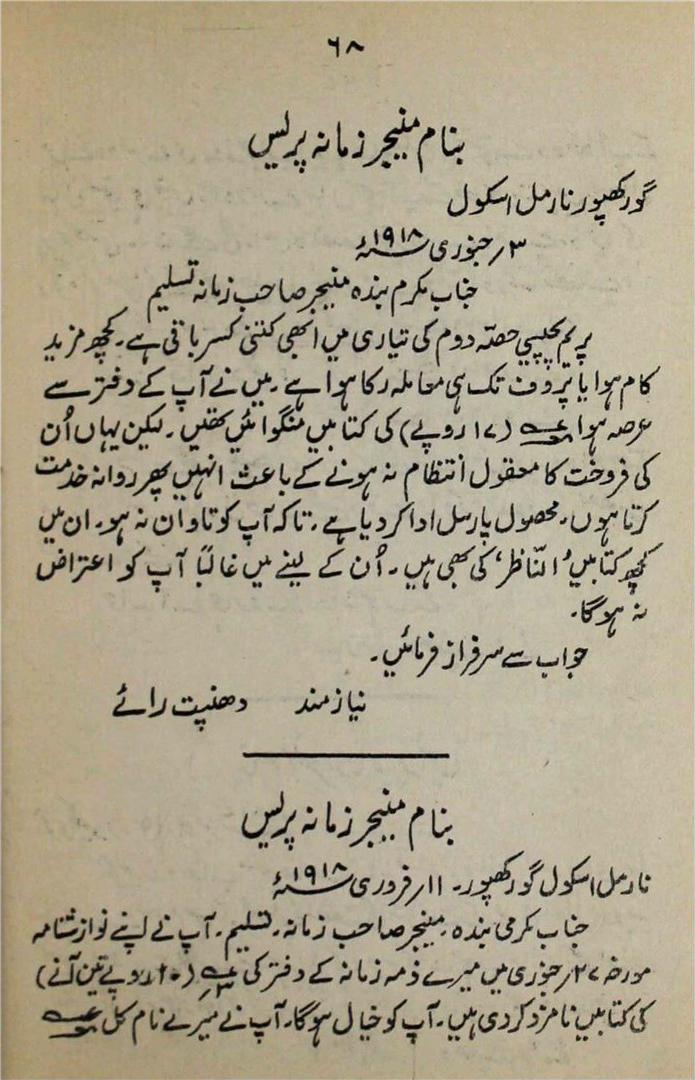 ۶۸
بنام منیجر زمانہ پریس
گورکھپور نارمل اسکول
۳؍ جنوری ۱۹۱۸ء
جناب مکرم بندہ منیجر صاحب زمانہ تسلیم
پریم پچیسی حصّہ دوم کی تیاری میں ابھی کتنی کسر باقی ہے۔ کچھ مزید
کام ہوا یا پروف تک ہی معاملہ رکا ہوا ہے۔ میں نے آپ کے دفتر سے
عرصہ ہوا (۱۷ روپے) کی کتابیں منگوائیں تھیں۔ لیکن یہاں اُن
کی فروخت کا معقول انتظام نہ ہونے کے باعث انہیں پھر روانہ خدمت
کرتا ہوں۔ محصول پارسل ادا کر دیا ہے۔ تاکہ آپ کو تاوان نہ ہو۔ ان میں
کچھ کتابیں ’النّاظر‘ کی بھی ہیں۔ اُن کے لینے میں غالباً آپ کو اعتراض
نہ ہوگا۔
جواب سے سرفراز فرمائیں۔
نیازمند دھنپت رائے
بنام منیجر زمانہ پریس
نارمل اسکول گورکھپور۔ ۱۱؍ فروری ۱۹۱۸ء
جناب مکرمی بندہ۔ منیجر صاحب زمانہ۔ تسلیم۔ آپ نے اپنے نوازشنامہ
مورخہ ۲۷؍ جنوری میں میرے ذمہ زمانہ کے دفتر کی (۱۰ روپے تین آنے)
کی کتابیں نامزد کر دی ہیں۔ آپ کو خیال ہوگا۔ آپ نے میرے نام کل